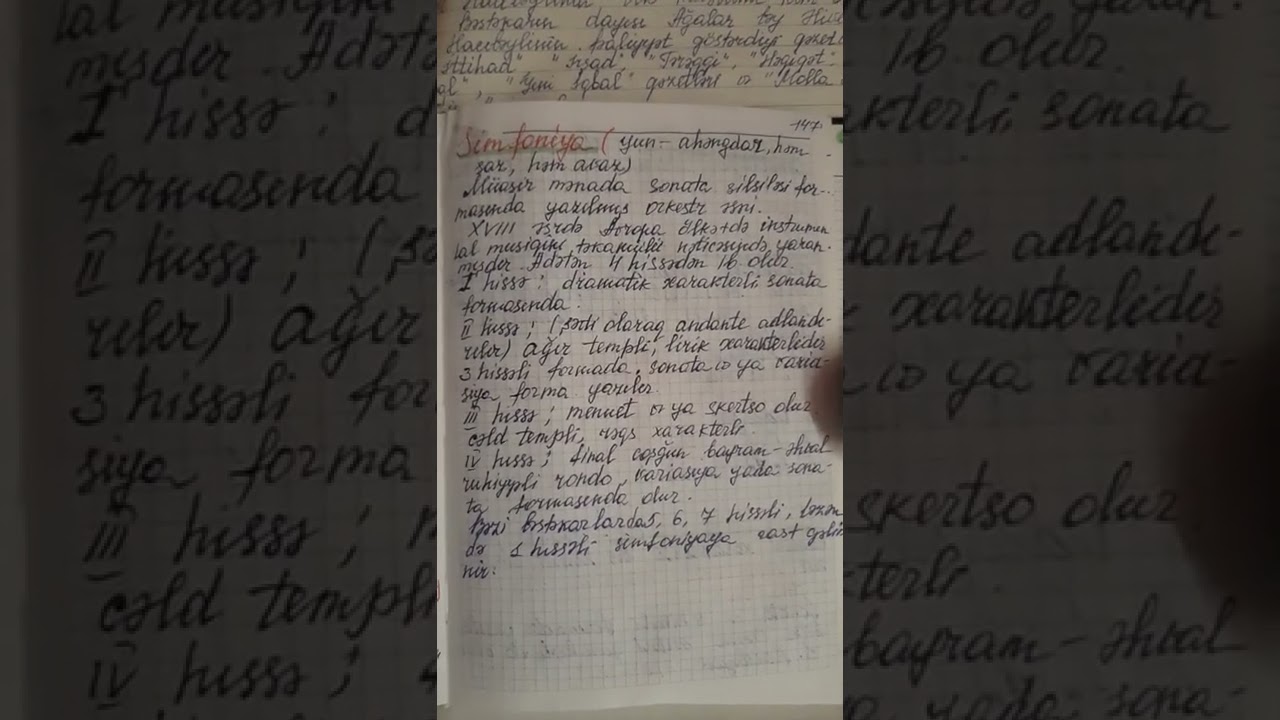 Bəstəkarın dayısı Ağalar bəy Əliv
Hacıbəylinin fəaliyyət göstərdiyi qəzet
İttihad" "İrşad" "Tərəqqi", "Həqiqət"
al", "Yeni İqbal" qəzetləri və "Molla
147
Simfoniya ( yun- ahəngdar, həm
səs, həm avaz)
Müasir mənada sonata silsiləsi for-
masında yazılmış orkestr əsəri.
XVIII əsrdə Avropa ölkə+də instrumen
tal musiqini təkamülü nəticəsində yaran-
mışdır. Adətən 4 hissədən ib olur.
I hissə: dramatik xarakterli sonata
formasında.
II hissə; (şərti olaraq andante adlandı-
rılır) ağır templi, lirik xarakterlidir
3 hissəli formada, sonata və ya varia-
siya forma yazılır.
III hissə; menuet və ya skertso olur.
cəld templi, rəqs xarakterli.
IV hissə; final coşğun bayram-əhval
ruhiyyəli rondo, variasiya yada sona-
ta formasında olur.
Bəzi bəstəkarlarda 5, 6, 7 hissəli, bəzən
də 1 hissəli simfoniyaya rast gəlin
nir.